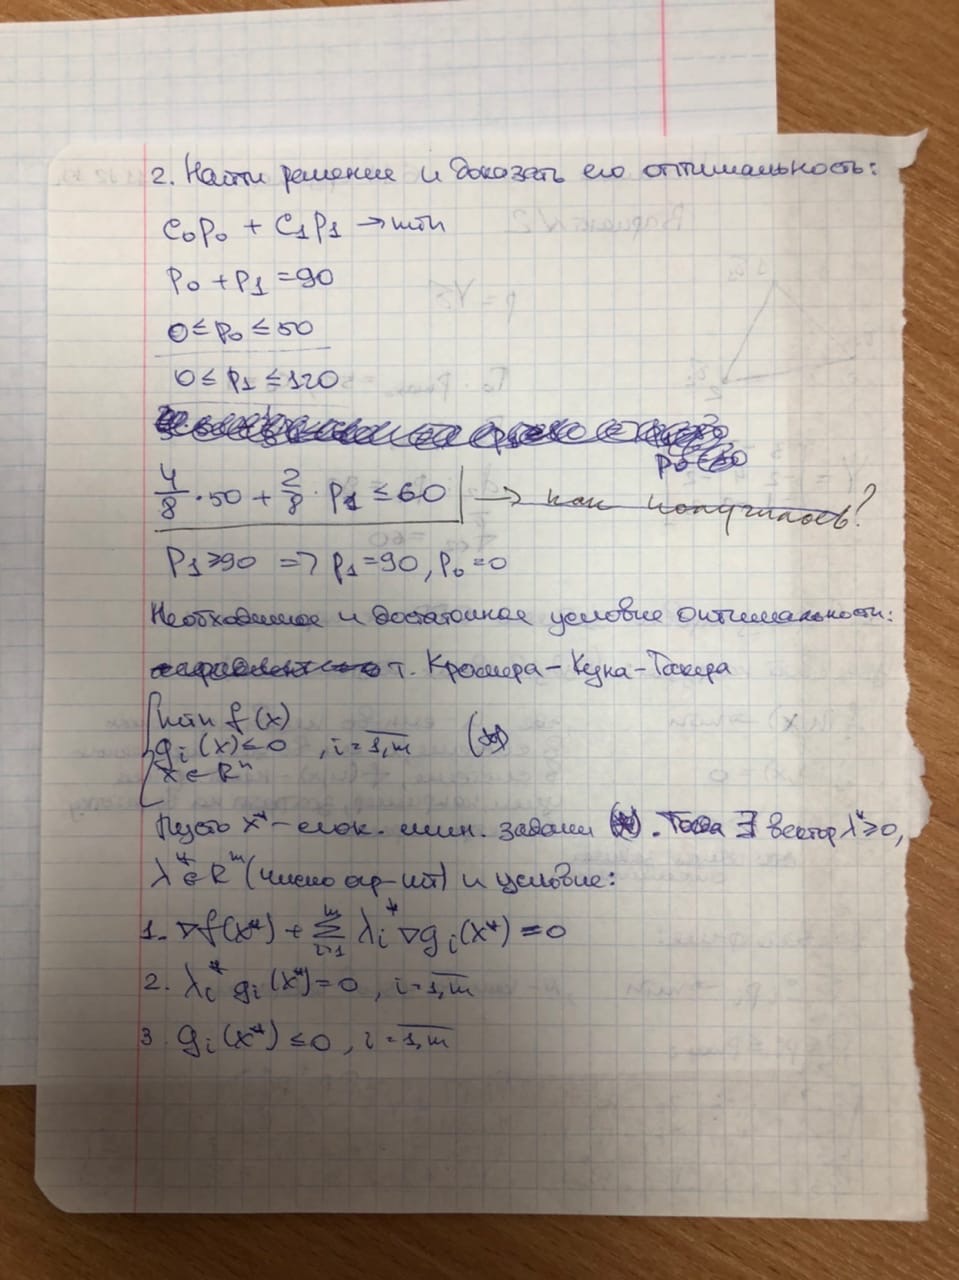 2. Найти решение и доказать его оптимальность:
C₀P₀ + C₁P₁ → min
P₀ + P₁ = 90
0 ≤ P₀ ≤ 50
0 ≤ P₁ ≤ 120
P₀ ≤ 50
4/8 · 50 + 2/8 · P₁ ≤ 60 → как получилось?
P₁ ≥ 90 => P₁ = 90, P₀ = 0
Необходимое и достаточное условие оптимальности:
т. Кромера - Куна - Такера
min f(x)
gᵢ(x) ≤ 0, i = 1,m (*)
x ∈ Rⁿ
Пусть x* - лок. мин. задачи (*). Тогда ∃ вектор λ* ≥ 0,
λ* ∈ Rᵐ (число огр-ий) и условие:
1. ∇f(x*) + Σᵢ₌₁ᵐ λᵢ* ∇gᵢ(x*) = 0
2. λᵢ* gᵢ(x*) = 0, i = 1,m
3. gᵢ(x*) ≤ 0, i = 1,m